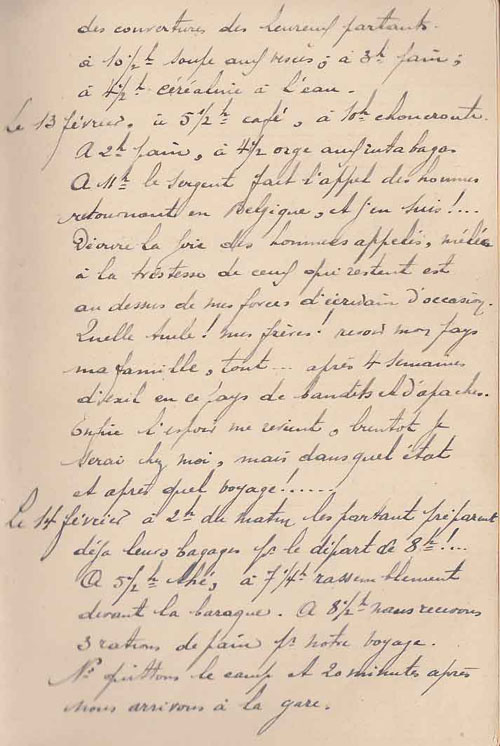 des couvertures des heureux partants.
à 10½ h soupe aux vesces ; à 3h pain ;
à 4½ h céréaline à l'eau.
Le 13 février, à 5½ h café, à 10h choucroute.
A 2h pain, à 4½ orge aux rutabagas
A 11h le sergent fait l'appel des hommes
retournant en Belgique, et j'en suis !...
Décrire la joie des hommes appelés, mêlée
à la tristesse de ceux qui restent est
au dessus de mes forces d'écrivain d'occasion.
Quelle tuile ! mes frères ! revoir mon pays
ma famille, tout... après 4 semaines
d'exil en ce pays de bandits et d'apaches.
Enfin l'espoir me revient, bientôt je
serai chez moi, mais dans quel état
et après quel voyage !......
Le 14 février à 2h du matin les partant préparent
déjà leurs bagages pr le départ de 8h !...
A 5½ h thé, à 7¼ h rassemblement
devant la baraque. A 8½ h nous recevons
3 rations de pain pr notre voyage.
Ns quittons le camp et 20 minutes après
nous arrivons à la gare.